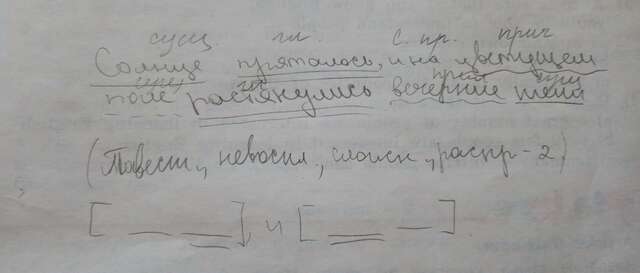 сущ. гл. с. пр. прич
Солнце пряталось, и на цветущем
сущ. гл. прил сущ
поле растянулись вечерние тени
(Повест., невоскл., сложн., распр - 2)
[ ], и [ ]